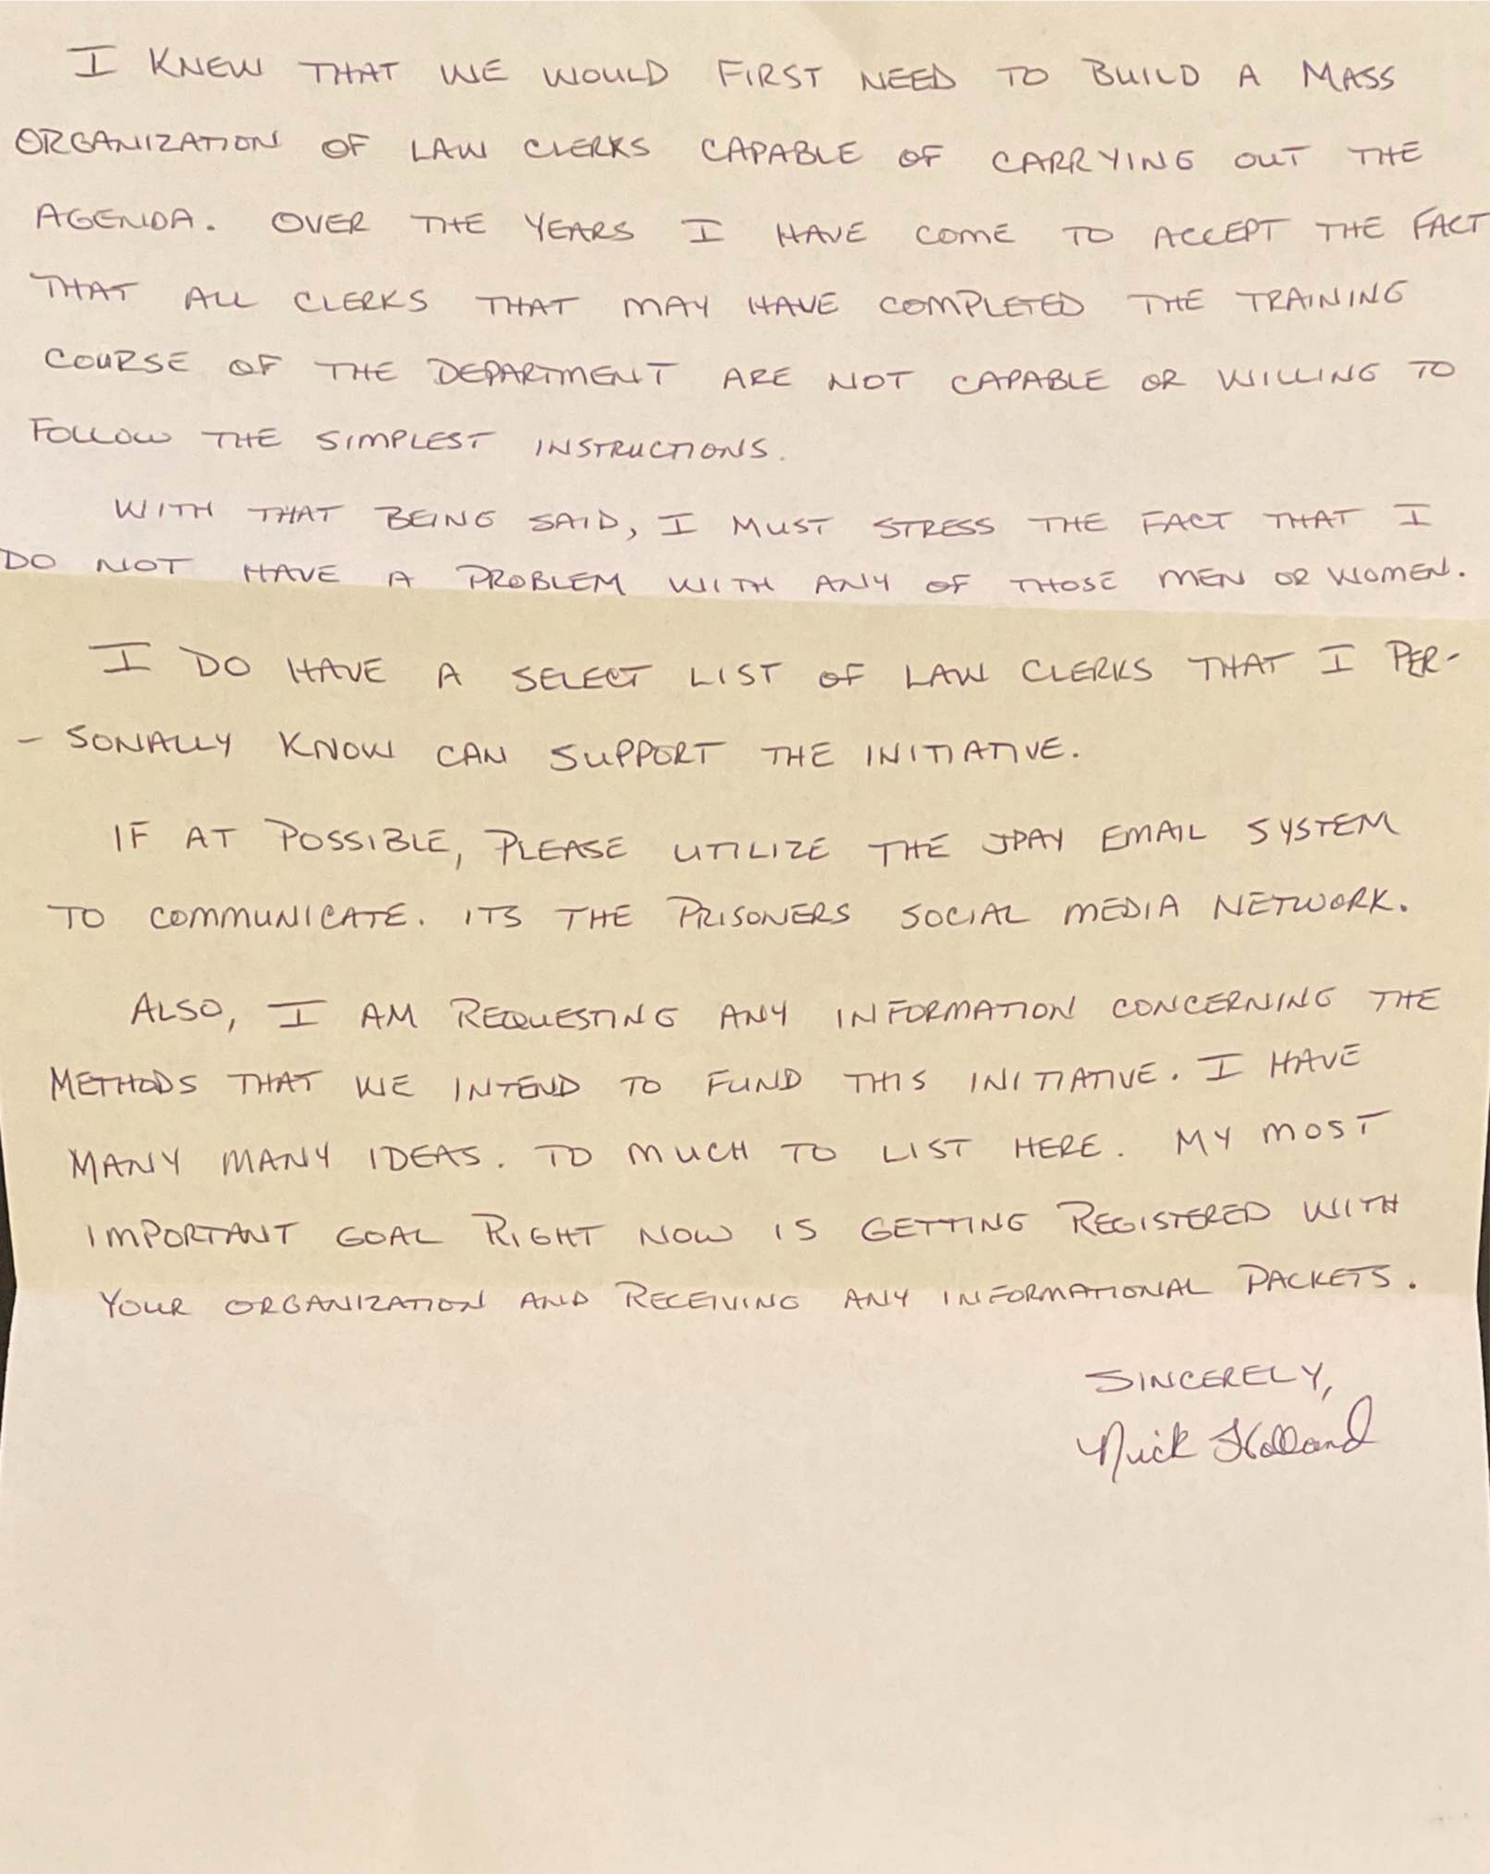 I KNEW THAT WE WOULD FIRST NEED TO BUILD A MASS
ORGANIZATION OF LAW CLERKS CAPABLE OF CARRYING OUT THE
AGENDA. OVER THE YEARS I HAVE COME TO ACCEPT THE FACT
THAT ALL CLERKS THAT MAY HAVE COMPLETED THE TRAINING
COURSE OF THE DEPARTMENT ARE NOT CAPABLE OR WILLING TO
FOLLOW THE SIMPLEST INSTRUCTIONS.
WITH THAT BEING SAID, I MUST STRESS THE FACT THAT I
DO NOT HAVE A PROBLEM WITH ANY OF THOSE MEN OR WOMEN.
I DO HAVE A SELECT LIST OF LAW CLERKS THAT I PER-
- SONALLY KNOW CAN SUPPORT THE INITIATIVE.
IF AT POSSIBLE, PLEASE UTILIZE THE JPAY EMAIL SYSTEM
TO COMMUNICATE. ITS THE PRISONERS SOCIAL MEDIA NETWORK.
ALSO, I AM REQUESTING ANY INFORMATION CONCERNING THE
METHODS THAT WE INTEND TO FUND THIS INITIATIVE. I HAVE
MANY MANY IDEAS. TO MUCH TO LIST HERE. MY MOST
IMPORTANT GOAL RIGHT NOW IS GETTING REGISTERED WITH
YOUR ORGANIZATION AND RECEIVING ANY INFORMATIONAL PACKETS.
SINCERELY,
Nick Holland